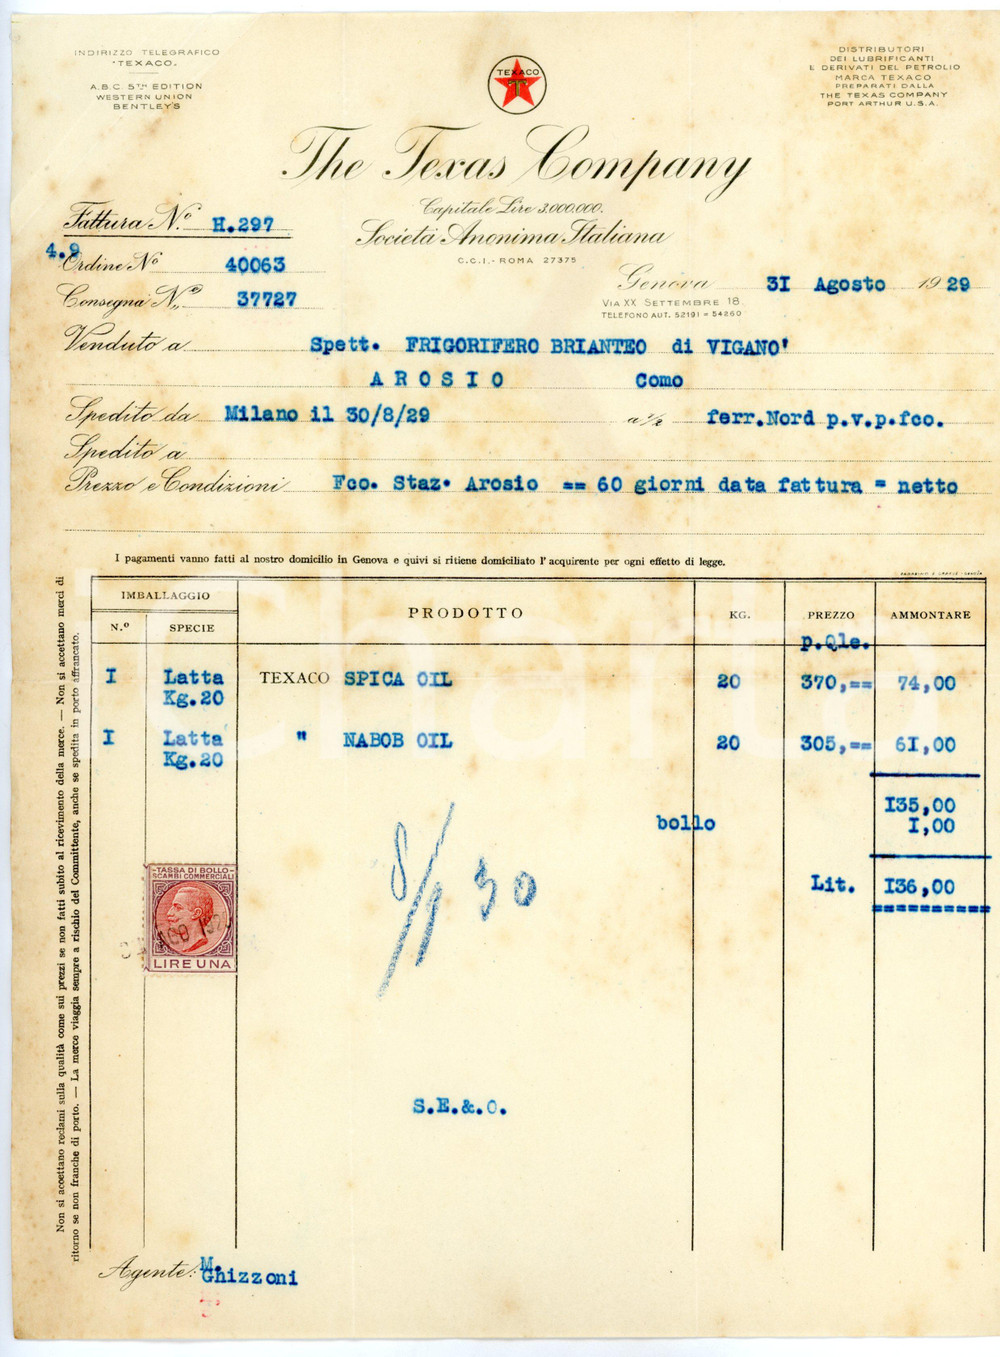 INDIRIZZO TELEGRAFICO
"TEXACO."
A.B.C. 5TH EDITION
WESTERN UNION
BENTLEY'S
TEXACO
T
DISTRIBUTORI
DEI LUBRIFICANTI
E DERIVATI DEL PETROLIO
MARCA TEXACO
PREPARATI DALLA
THE TEXAS COMPANY
PORT ARTHUR U.S.A.
The Texas Company
Capitale Lire 3.000.000.
Società Anonima Italiana
C.C.I. - ROMA 27375
Fattura No. H.297
4.9
Ordine No 40063
Consegna No. 37727
Genova 31 Agosto 1929
VIA XX SETTEMBRE 18
TELEFONO AUT. 52191 = 54260
Venduto a Spett. FRIGORIFERO BRIANTEO di VIGANO'
AROSIO Como
Spedito da Milano il 30/8/29 a 1/2 ferr.Nord p.v.p.fco.
Spedito a
Prezzo e Condizioni Fco. Staz. Arosio == 60 giorni data fattura = netto
I pagamenti vanno fatti al nostro domicilio in Genova e quivi si ritiene domiciliato l'acquirente per ogni effetto di legge.
IMBALLAGGIO PRODOTTO KG. PREZZO AMMONTARE
N.º SPECIE
p.Qle.
I Latta TEXACO SPICA OIL 20 370,== 74,00
Kg.20
I Latta " NABOB OIL 20 305,== 61,00
Kg.20
135,00
bollo 1,00
Lit. 136,00
TASSA DI BOLLO
SCAMBI COMMERCIALI
LIRE UNA
S.E.&.O.
Agente: M.
Ghizzoni
Non si accettano reclami sulla qualità come sui prezzi se non fatti subito al ricevimento della merce. — Non si accettano merci di
ritorno se non franche di porto. — La merce viaggia sempre a rischio del Committente, anche se spedita in porto affrancato.